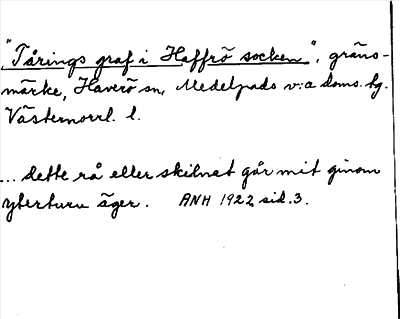 "Tårings graf i Haffrö socken", gräns-
märke, Haverö sn, Medelpads v:a doms. hg.
Västernorrl. l.
... dette rå eller skilnat går mit ginom
ytterturu äger. ANH 1922 sid. 3.